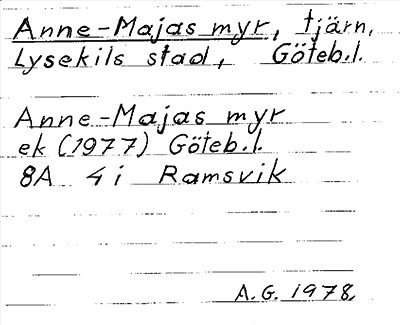 Anne-Majas myr, tjärn,
Lysekils stad, Göteb.l.
Anne-Majas myr
ek (1977) Göteb.l.
8A 4i Ramsvik
A.G. 1978.